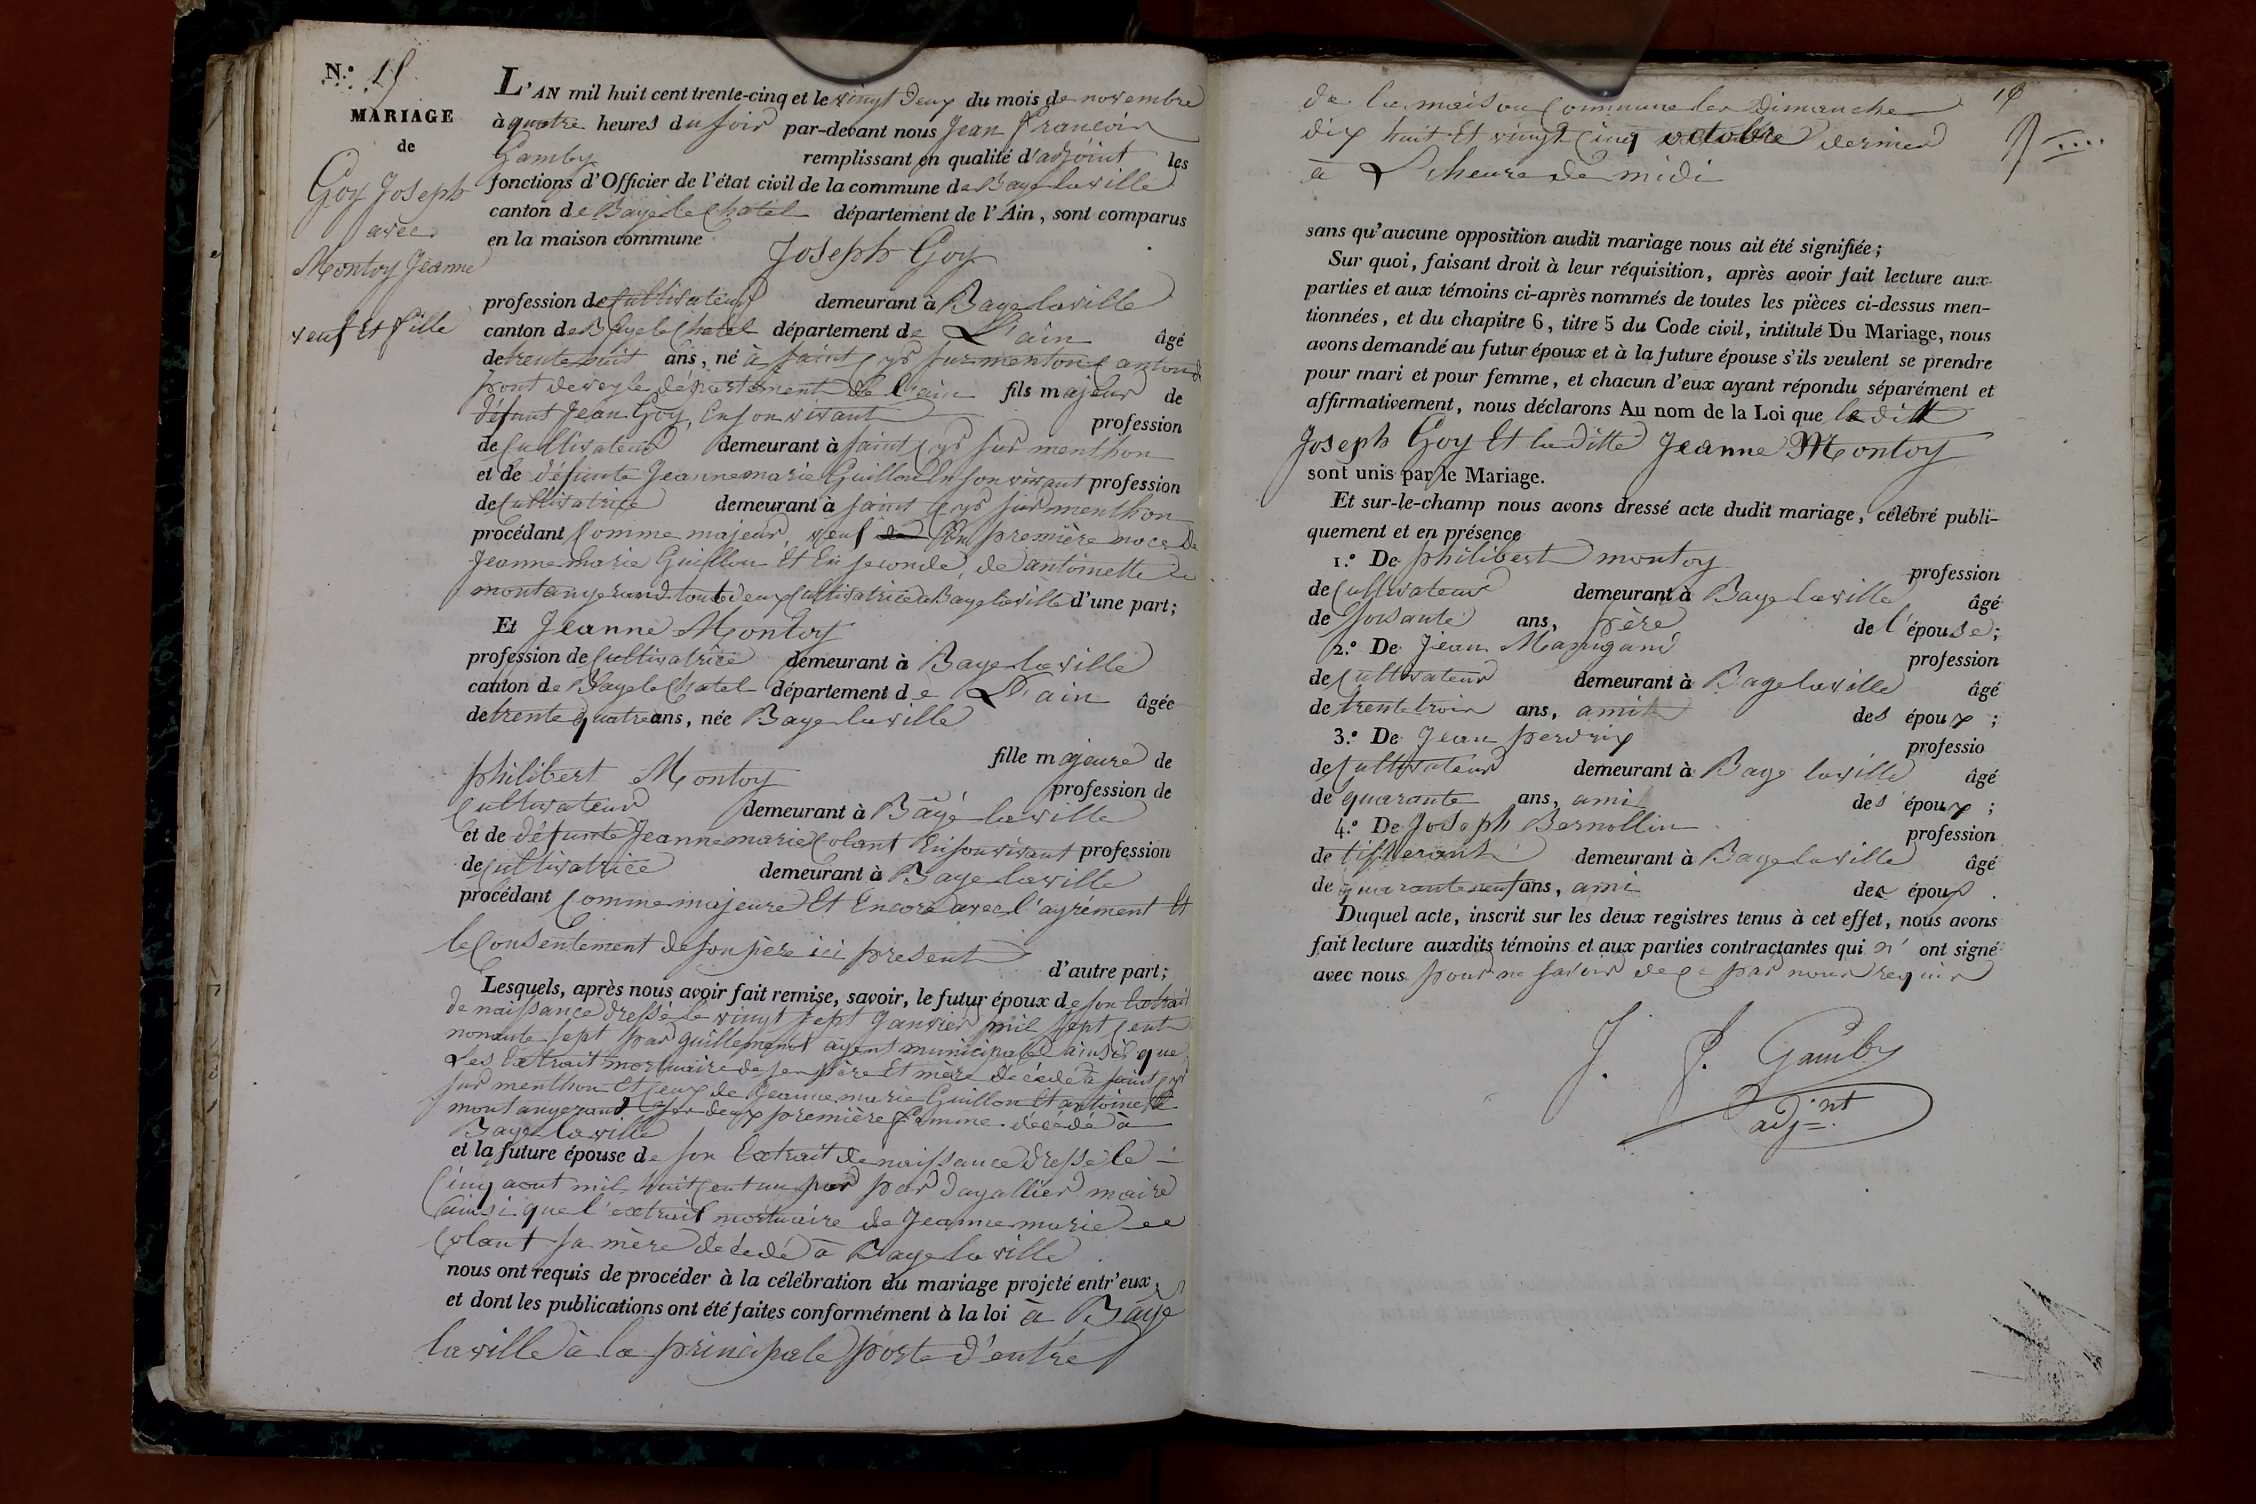 N.º 15
MARIAGE
de
Goy Joseph
avec
Montoy Jeanne
veuf et fille
L'AN mil huit cent trente-cinq et le vingt deux du mois de novembre
à quatre heures du soir par-devant nous Jean francois
Gamby remplissant en qualité d'adjoint les
fonctions d'Officier de l'état civil de la commune de Bagé laville
canton de Bagé le Chatel département de l'Ain, sont comparus
en la maison commune Joseph Goy
profession de Cultivateur demeurant à Bagé laville
canton de Bagé le Chatel département de L'ain âgé
de trente huit ans, né à saint Cyr sur menton Canton de
pont de veyle département de l'ain fils majeur de
défunt Jean Goy, En son vivant profession
de Cultivateur demeurant à saint Cyr sur menthon
et de défunte Jeanne marie Guillon En son vivant profession
de Cultivatrice demeurant à saint Cyr sur menthon
procédant Comme majeur, veuf En première noce de
Jeanne marie Guillon Et En seconde, de antoinette
montangerand toute deux Cultivatrice à Bagé laville d'une part;
Et Jeanne Montoy
profession de Cultivatrice demeurant à Bagé laville
canton de Bagé le Chatel département de L'ain âgée
de trente quatre ans, née Bagé laville
fille majeure de
philibert Montoy profession de
Cultivateur demeurant à Bagé laville
et de défunte Jeanne marie Colant En son vivant profession
de Cultivatrice demeurant à Bagé laville
procédant Comme majeure Et Encore avec l'agrément Et
le Consentement de son père ici present
d'autre part;
Lesquels, après nous avoir fait remise, savoir, le futur époux de son Extrait
de naissance dressé le vingt sept Janvier mil sept Cent
nonante sept par guillemenot agent municipale ainsi que
Les Extrait mortuaire de son père Et mère décédé à saint Cyr
sur menthon Et Ceux de Jeanne marie Guillon Et antoinette
montangerand deux première femme décédé à
Bagé laville
et la future épouse de son Extrait de naissance dressé le
Cinq aout mil huit Cent un par dagallier maire
ainsi que l'extrait mortuaire de Jeanne marie
Colant sa mère décédé à Bagé la ville
nous ont requis de procéder à la célébration du mariage projeté entr'eux
et dont les publications ont été faites conformément à la loi à Bagé
laville à la principale porte d'entré
18
de la maison Commune les Dimanche
dix huit Et vingt Cinq octobre dernier
à L'heure de midi
sans qu'aucune opposition audit mariage nous ait été signifiée;
Sur quoi, faisant droit à leur réquisition, après avoir fait lecture aux
parties et aux témoins ci-après nommés de toutes les pièces ci-dessus men-
tionnées, et du chapitre 6, titre 5 du Code civil, intitulé Du Mariage, nous
avons demandé au futur époux et à la future épouse s'ils veulent se prendre
pour mari et pour femme, et chacun d'eux ayant répondu séparément et
affirmativement, nous déclarons Au nom de la Loi que le dit
Joseph Goy Et la ditte Jeanne Montoy
sont unis par le Mariage.
Et sur-le-champ nous avons dressé acte dudit mariage, célébré publi-
quement et en présence
1.º De philibert montoy profession
de Cultivateur demeurant à Bagé laville âgé
de soisante ans, père de l'épouse;
2.º De Jean Manigand profession
de Cultivateur demeurant à Bagé laville âgé
de trente trois ans, ami des époux;
3.º De Jean perdrix professio
de Cultivateur demeurant à Bagé laville âgé
de quarante ans, ami des époux;
4.º De Joseph Bernollin profession
de tisserant demeurant à Bagé laville âgé
de quarante neuf ans, ami des époux.
Duquel acte, inscrit sur les deux registres tenus à cet effet, nous avons
fait lecture auxdits témoins et aux parties contractantes qui n'ont signé
avec nous pour ne savoir de ce par nous requis
J. f. Gamby
adj.nt